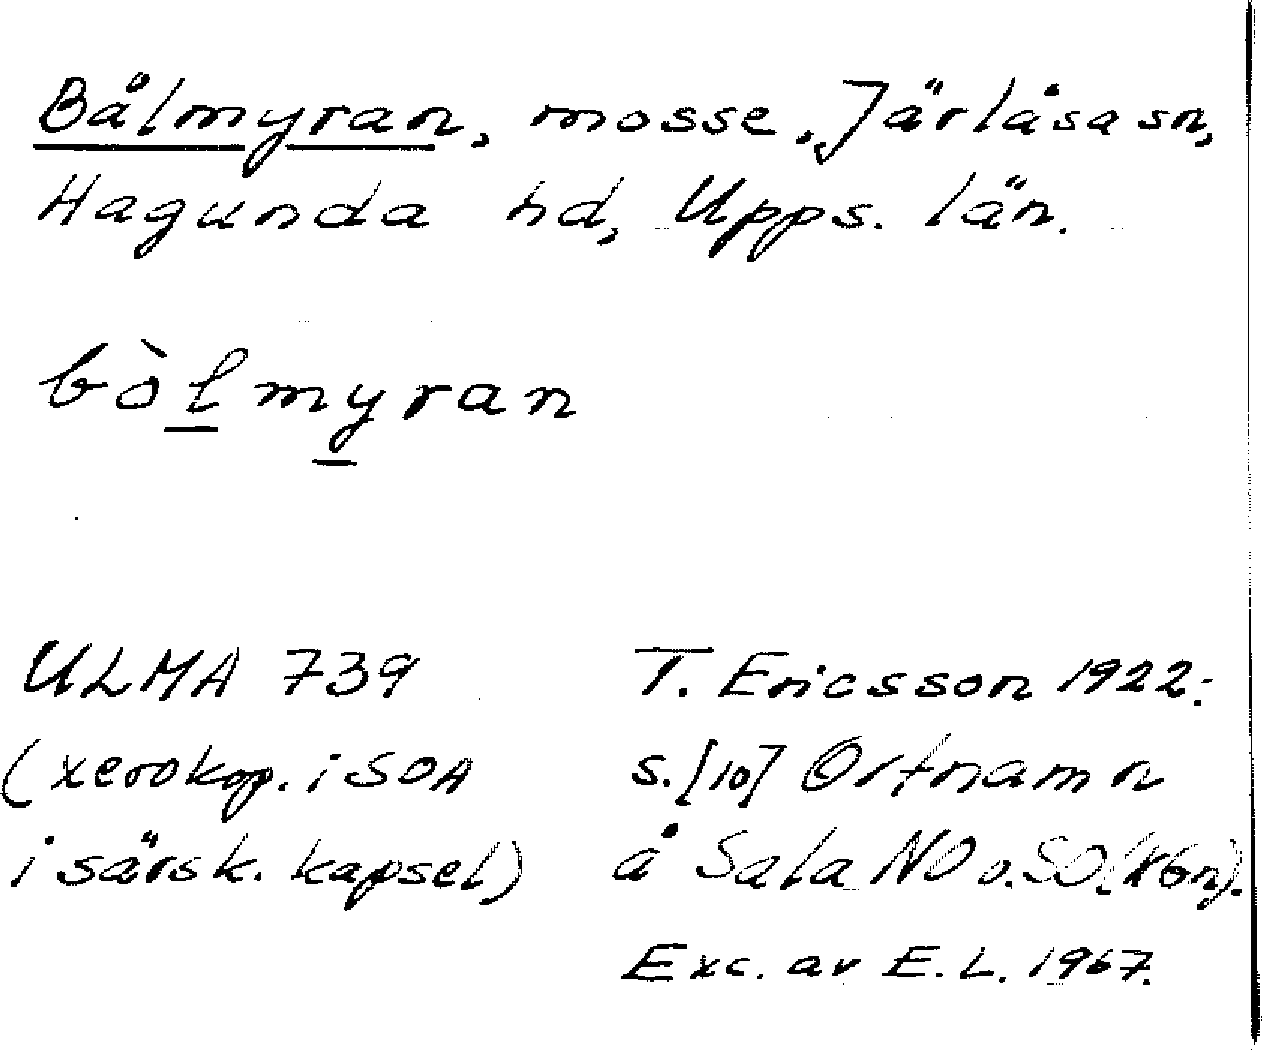 Bålmyran, mosse. Järlåsa sn,
Hagunda hd, Upps. län.
bòlmyran
ULMA 739
(xerokop. i SOA
i särsk. kapsel)
T. Ericsson 1922:
s. [10] Ortnamn
å Sala NO o. SO (kbn).
Exc. av E. L. 1967.